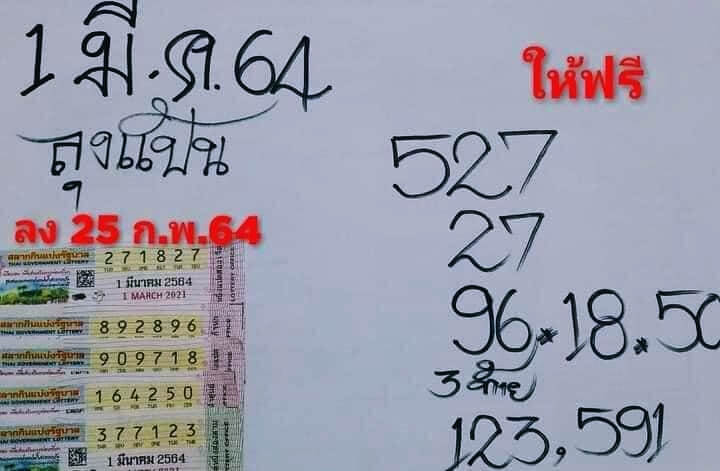 1 มี.ค.64
ให้ฟรี
ลุงแป้น
527
27
ลง 25 ก.พ.64
96.18.50
3 ท้าย
123,591
สลากกินแบ่งรัฐบาล 271827
THAI GOVERNMENT LOTTERY
1 มีนาคม 2564
1 MARCH 2021
สลากกินแบ่งรัฐบาล 892896
THAI GOVERNMENT LOTTERY
สลากกินแบ่งรัฐบาล 909718
THAI GOVERNMENT LOTTERY
สลากกินแบ่งรัฐบาล 164250
THAI GOVERNMENT LOTTERY
สลากกินแบ่งรัฐบาล 377123
THAI GOVERNMENT LOTTERY
1 มีนาคม 2564